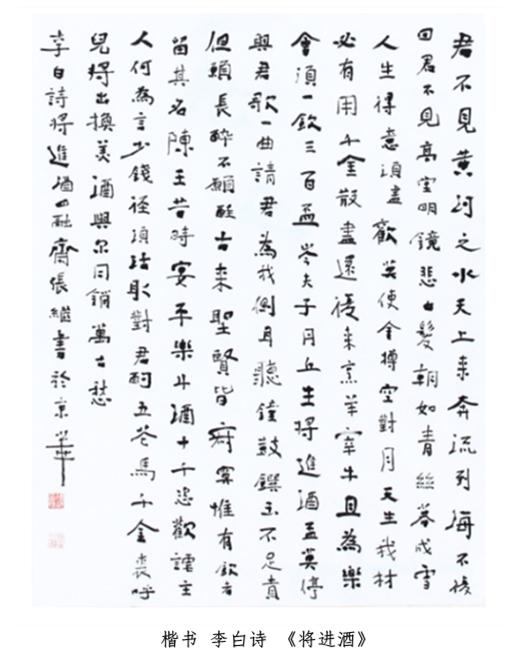 君不見黃河之水天上來奔流到海不復
回君不見高堂明鏡悲白髮朝如青絲暮成雪
人生得意須盡歡莫使金樽空對月天生我材
必有用千金散盡還復來烹羊宰牛且為樂
會須一飲三百盃岑夫子丹丘生將進酒盃莫停
與君歌一曲請君為我側耳聽鐘鼓饌玉不足貴
但願長醉不願醒古來聖賢皆寂寞惟有飲者
留其名陳王昔時宴平樂斗酒十千恣歡謔主
人何為言少錢徑須沽取對君酌五花馬千金裘呼
兒將出換美酒與爾同銷萬古愁
李白詩將進酒四融齋張繼書於京華
楷书 李白诗 《将进酒》